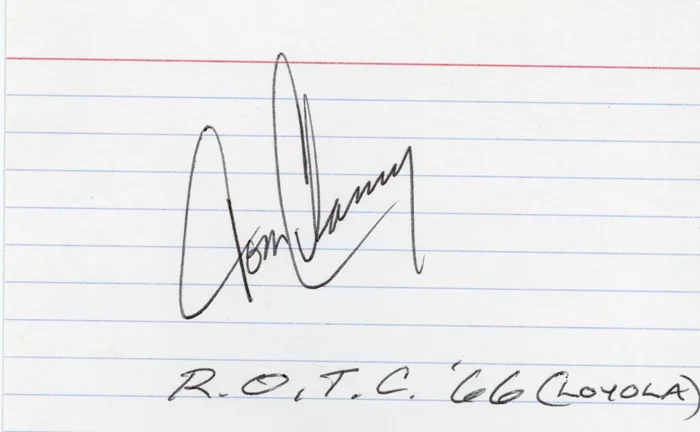 Tom Clancy
R.O.T.C. '66 (LOYOLA)